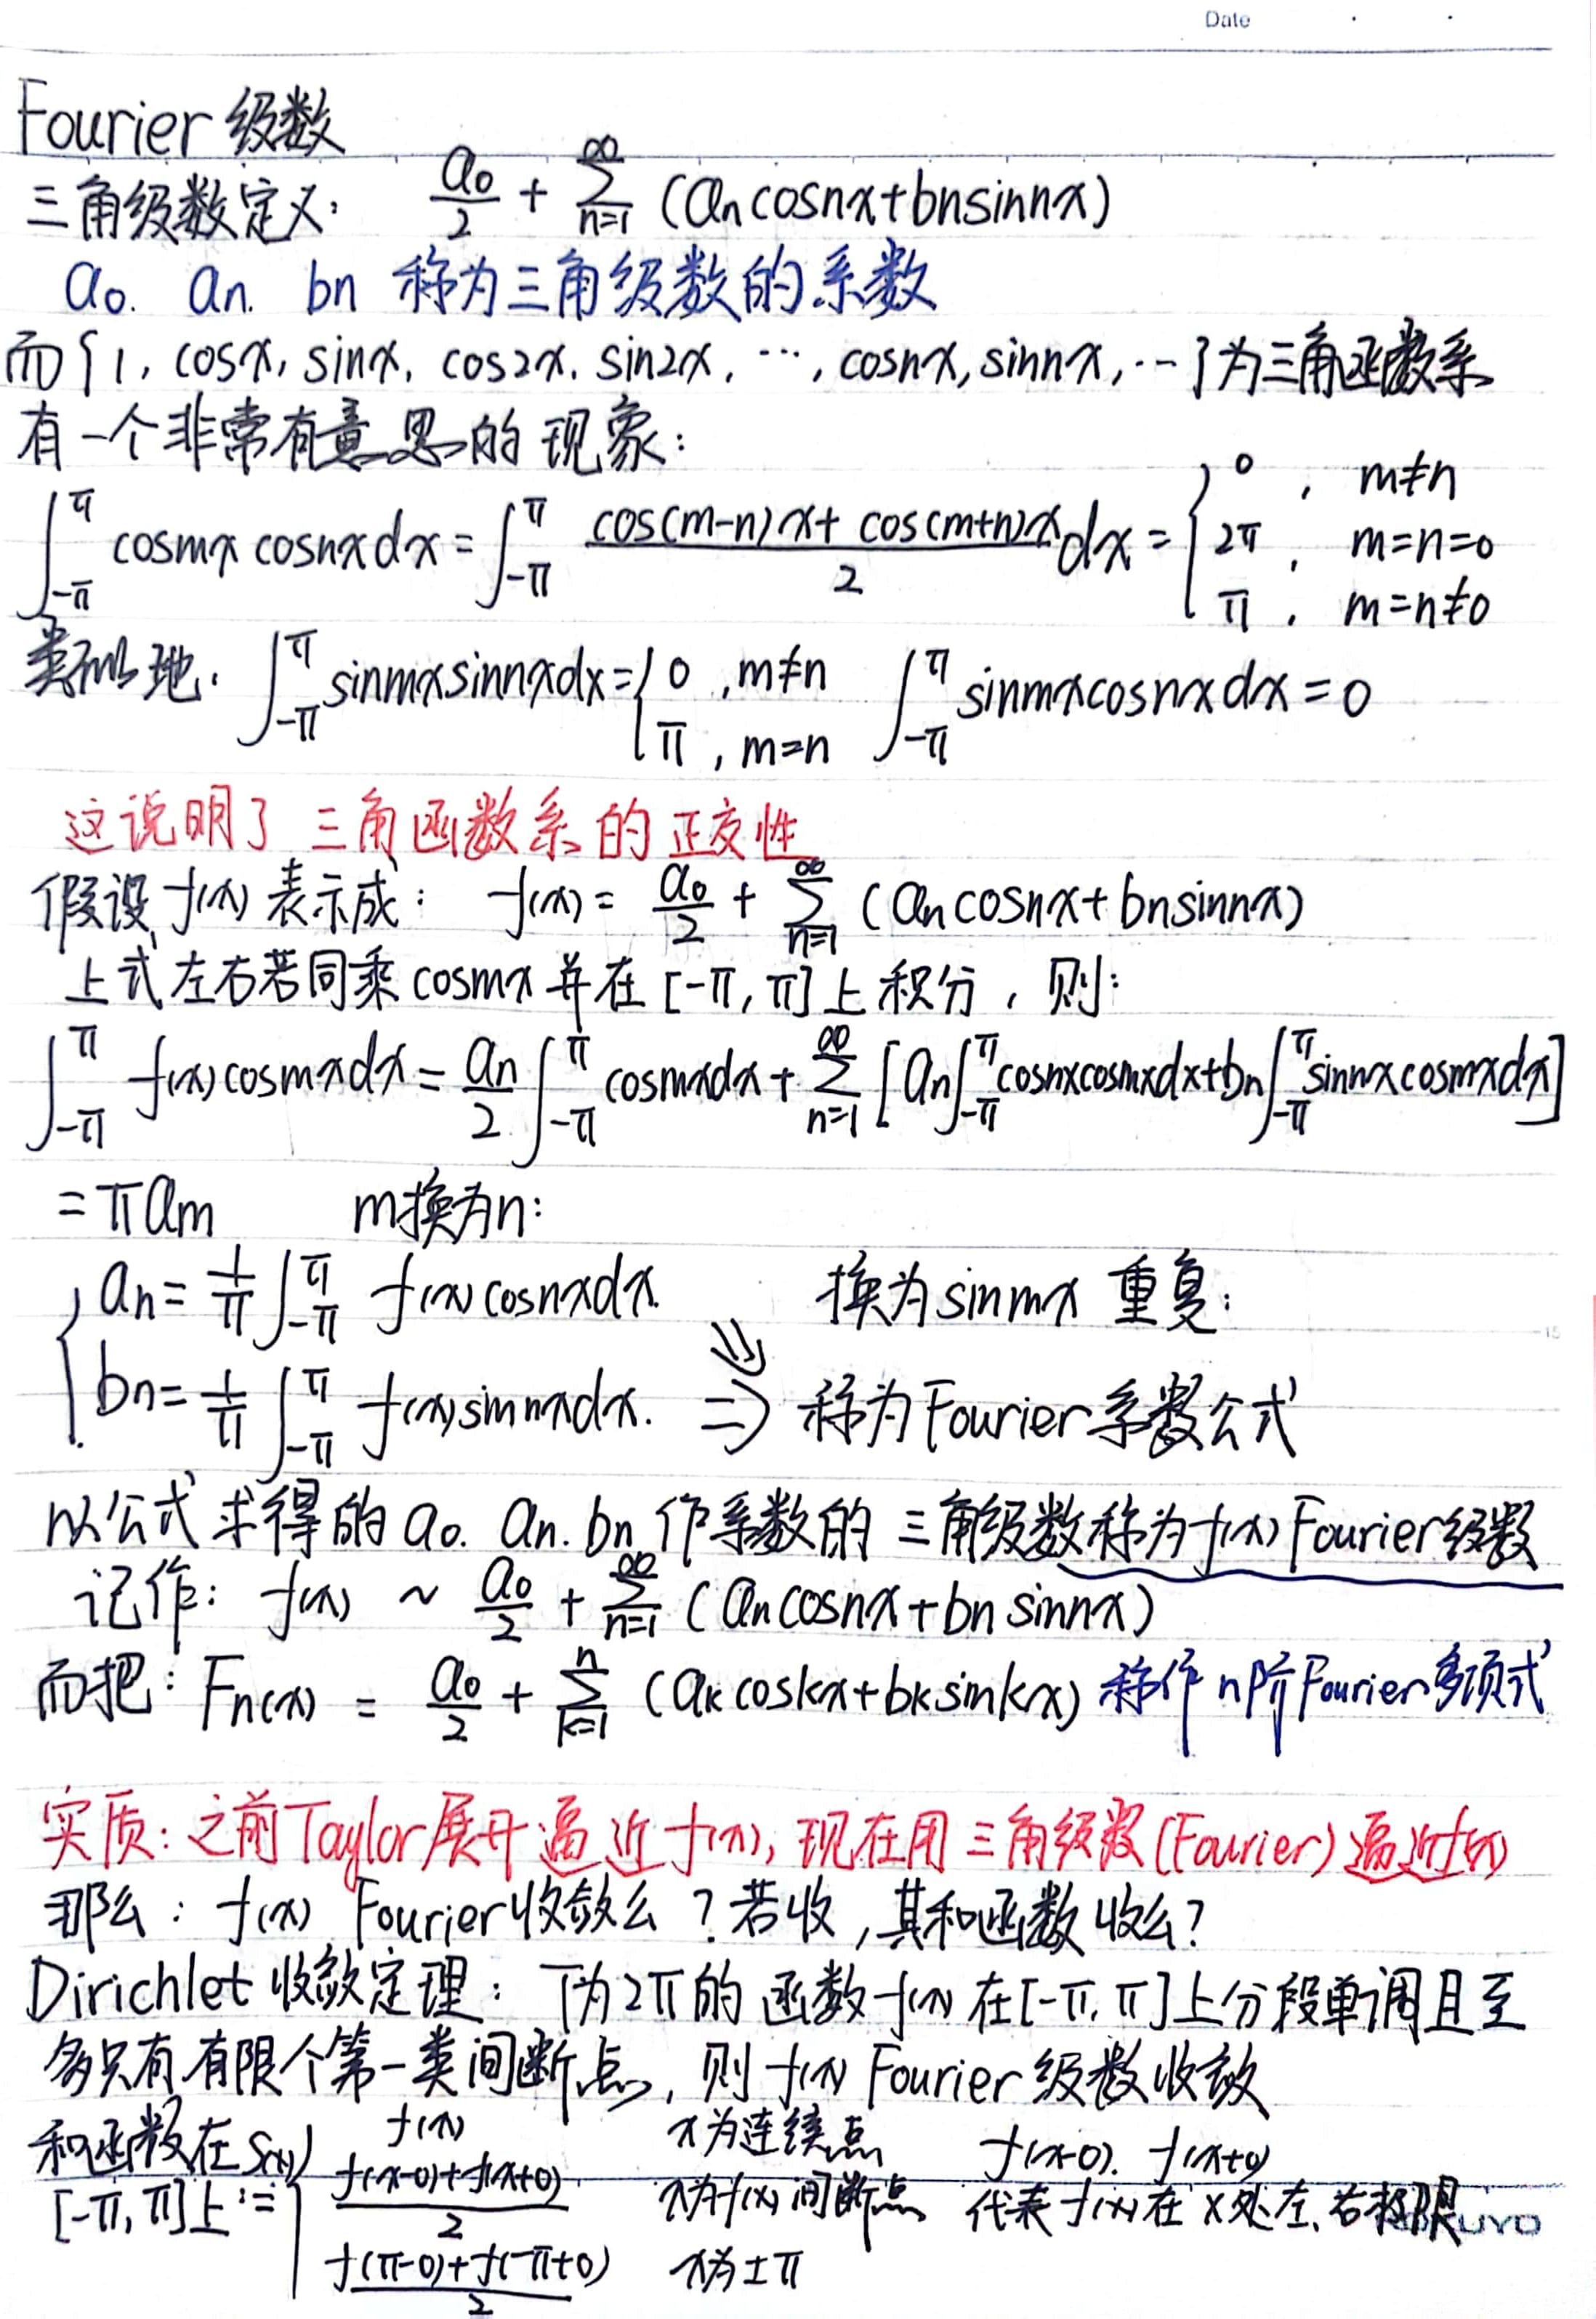 Date
Fourier 级数
三角级数定义: a₀/2 + ∑_{n=1}^{∞} (aₙcosnx+bₙsinnx)
a₀. aₙ. bₙ 称为三角级数的系数
而{1, cosx, sinx, cos2x, sin2x, …, cosnx, sinnx, …}为三角函数系
有一个非常有意思的现象:
∫_{-π}^{π} cosmx cosnxdx = ∫_{-π}^{π} (cos(m-n)x + cos(m+n)x)/2 dx = { 0, m≠n
2π, m=n=0
π, m=n≠0
类似地. ∫_{-π}^{π} sinmxsinnxdx = { 0, m≠n ∫_{-π}^{π} sinmxcosnxdx = 0
π, m=n
这说明了 三角函数系的正交性
假设f(x)表示成: f(x) = a₀/2 + ∑_{n=1}^{∞} (aₙcosnx+bₙsinnx)
上式左右若同乘cosmx并在[-π, π]上积分, 则:
∫_{-π}^{π} f(x)cosmxdx = aₙ/2 ∫_{-π}^{π} cosmxdx + ∑_{n=1}^{∞} [aₙ∫_{-π}^{π} cosnxcosmxdx+bₙ∫_{-π}^{π} sinnxcosmxdx]
= πaₘ m换为n:
{ aₙ = 1/π ∫_{-π}^{π} f(x)cosnxdx. 换为sinmx 重复:
bₙ = 1/π ∫_{-π}^{π} f(x)sinnxdx. ⇒ 称为Fourier系数公式
以公式求得的a₀. aₙ. bₙ作系数的三角级数称为f(x)Fourier级数
记作: f(x) ~ a₀/2 + ∑_{n=1}^{∞} (aₙcosnx+bₙsinnx)
而把: Fₙ(x) = a₀/2 + ∑_{k=1}^{n} (aₖcoskx+bₖsinkx) 称作n阶Fourier多项式
实质: 之前Taylor展开逼近f(x), 现在用三角级数(Fourier)逼近f(x)
那么: f(x) Fourier收敛么? 若收, 其和函数收么?
Dirichlet收敛定理: T为2π的函数f(x)在[-π, π]上分段单调且至
多只有有限个第一类间断点, 则f(x) Fourier级数收敛
和函数在S(x) f(x) x为连续点 f(x-0). f(x+0)
[-π, π]上:= { (f(x-0)+f(x+0))/2 x为f(x)间断点 代表f(x)在x处左、右极限
(f(π-0)+f(-π+0))/2 x为±π